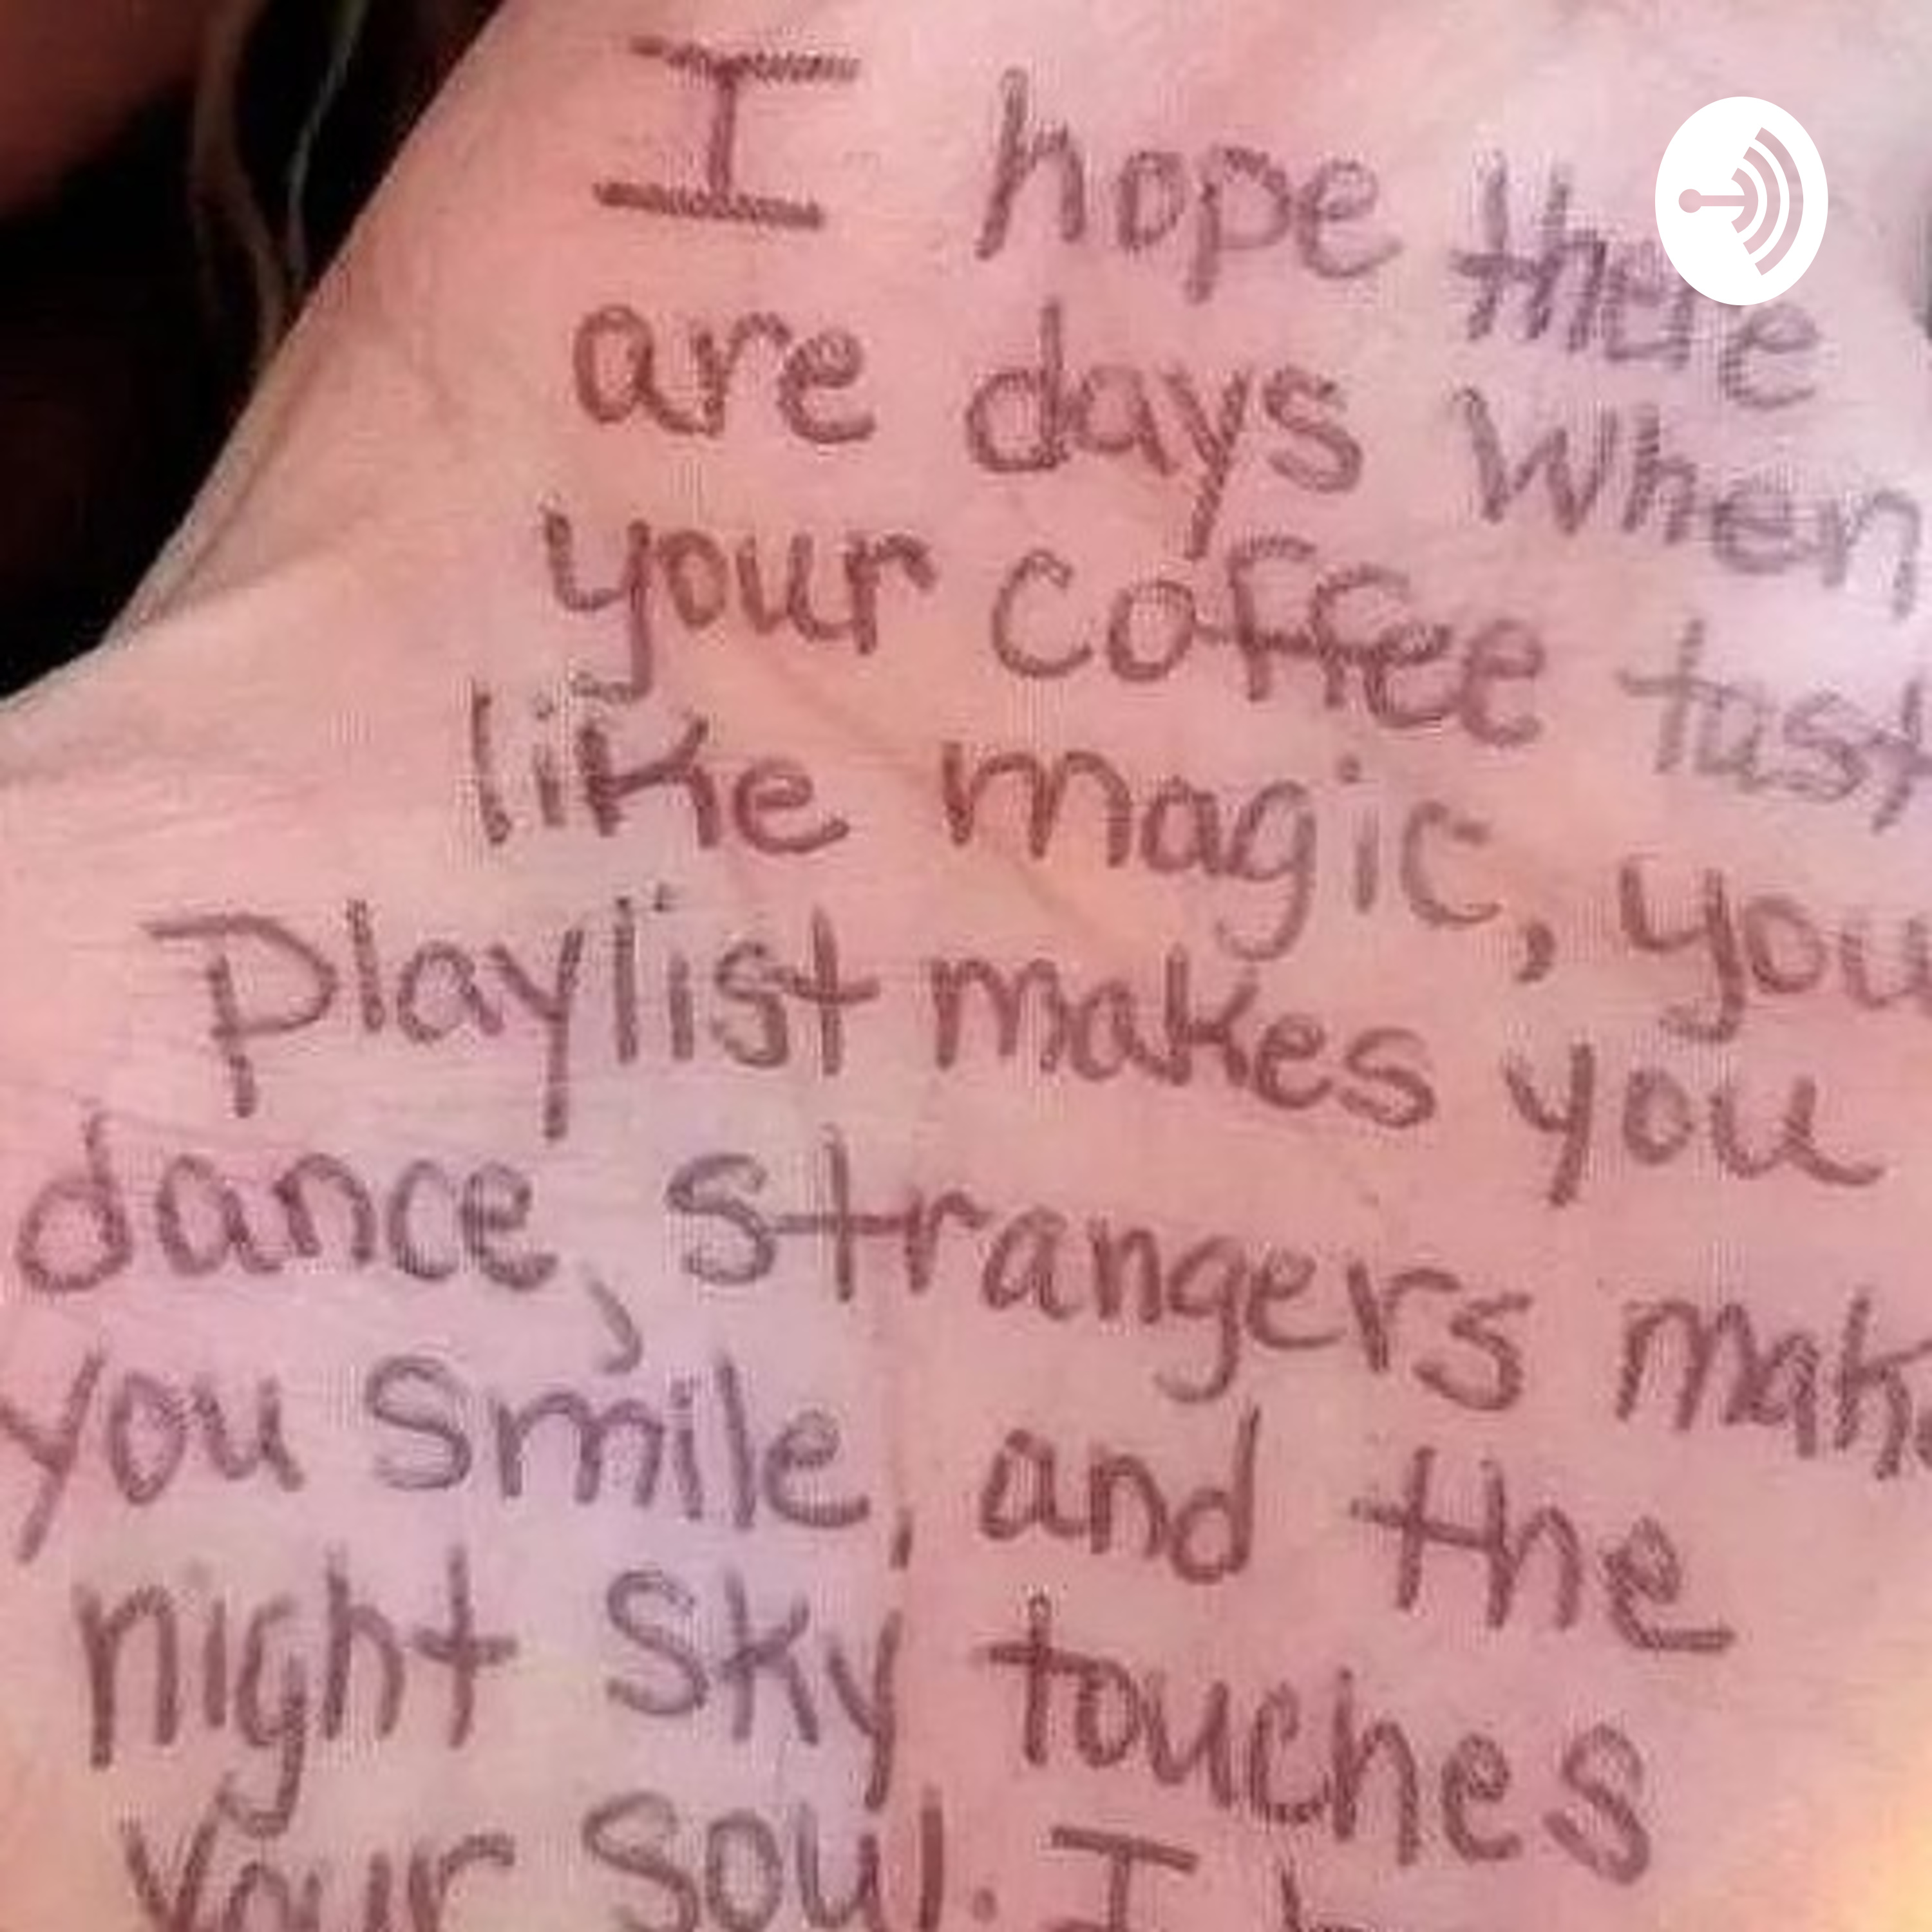 I hope there
are days when
your coffee tast
like magic, you
Playlist makes you
dance, strangers mak
you smile, and the
night sky touches
Your soul. I